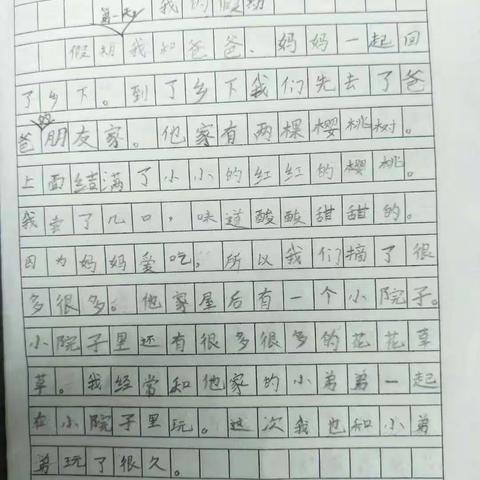 我的假期
第一天
假期我和爸爸、妈妈一起回
了乡下。到了乡下我们先去了爸
爸的朋友家。他家有两棵樱桃树。
上面结满了小小的红红的樱桃。
我去了几口，味道酸酸甜甜的。
因为妈妈爱吃，所以我们摘了很
多很多。他家屋后有一个小院子。
小院子里还有很多很多的花花草
草。我经常和他家的小弟弟一起
在小院子里玩。这次我也和小弟
弟玩了很久。